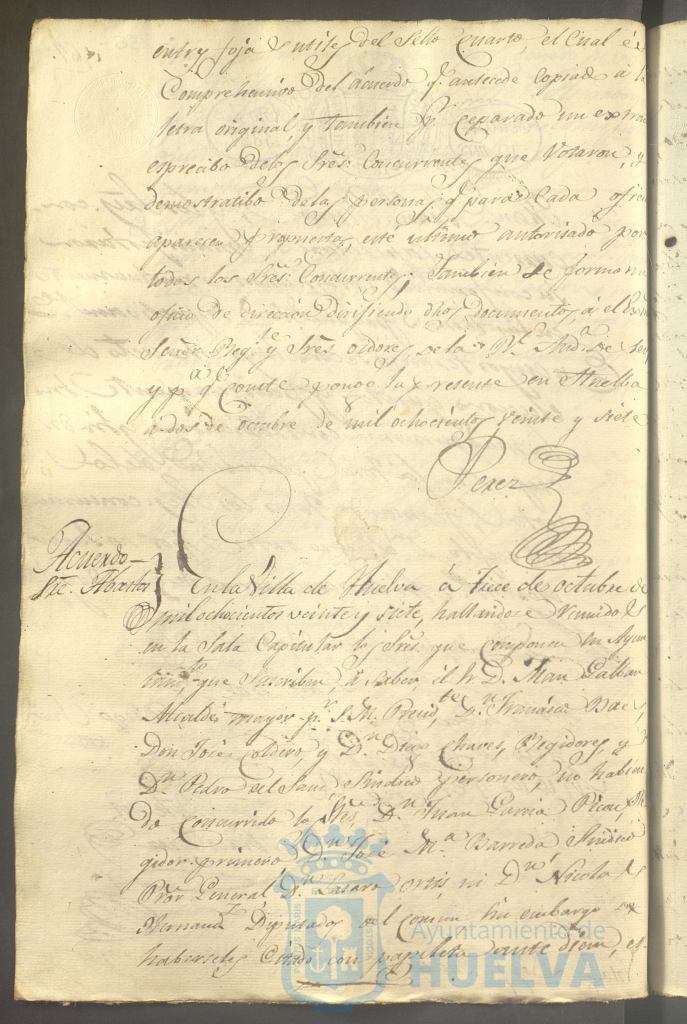 entry foja utiles del Sello cuarto, el Cual es
Comprehensivo del acuerdo q.e antecede copiado a la
letra original, y tambien p.r ceparado un extrac
esprecibo de los Sres. Concurrentes que Votaron, y
demostratibo de las personas q.e para Cada oficio
aparecen propuestos, este ultimo autorisado por
todos los Sres. Concurrentes. Tambien se formo un
oficio de direccion dirifiendo dhos Documentos á el Exmo
Señor Reg.te y Sres oidores de la R.l Aud.a de Sev
y p.a q.e Conste pongo la presente en Huelba
a dos de octubre de mil ochocientos veinte y siete
Perez
Acuerdo
sre. Abastos
En la Villa de Huelva á trece de octubre de
mil ochocientos veinte y siete, hallandose reunidos
en la Sala Capitular los Sres. que componen su Ayun
tam.to que suscriben, á saber, el Sr. D. Juan Galban
Alcalde mayor p.r S. M. Presid.te D.n Francisco Baes,
Don José Coldero, y D.n Diego Chaves, Regidores y
D.n Pedro del Sans Sindico personero, no habien
do concurrido los Sres. D.n Juan Garcia Picon, Re
gidor primero, D.n José M.a Barreda Sindico
Pror. General, D.n Lasaro ortis, ni D.n Nicolas
Hernand.z Diputados del comun sin embargo de
haberseles Citado con papeleta ante diem, es-
Ayuntamiento de
HUELVA